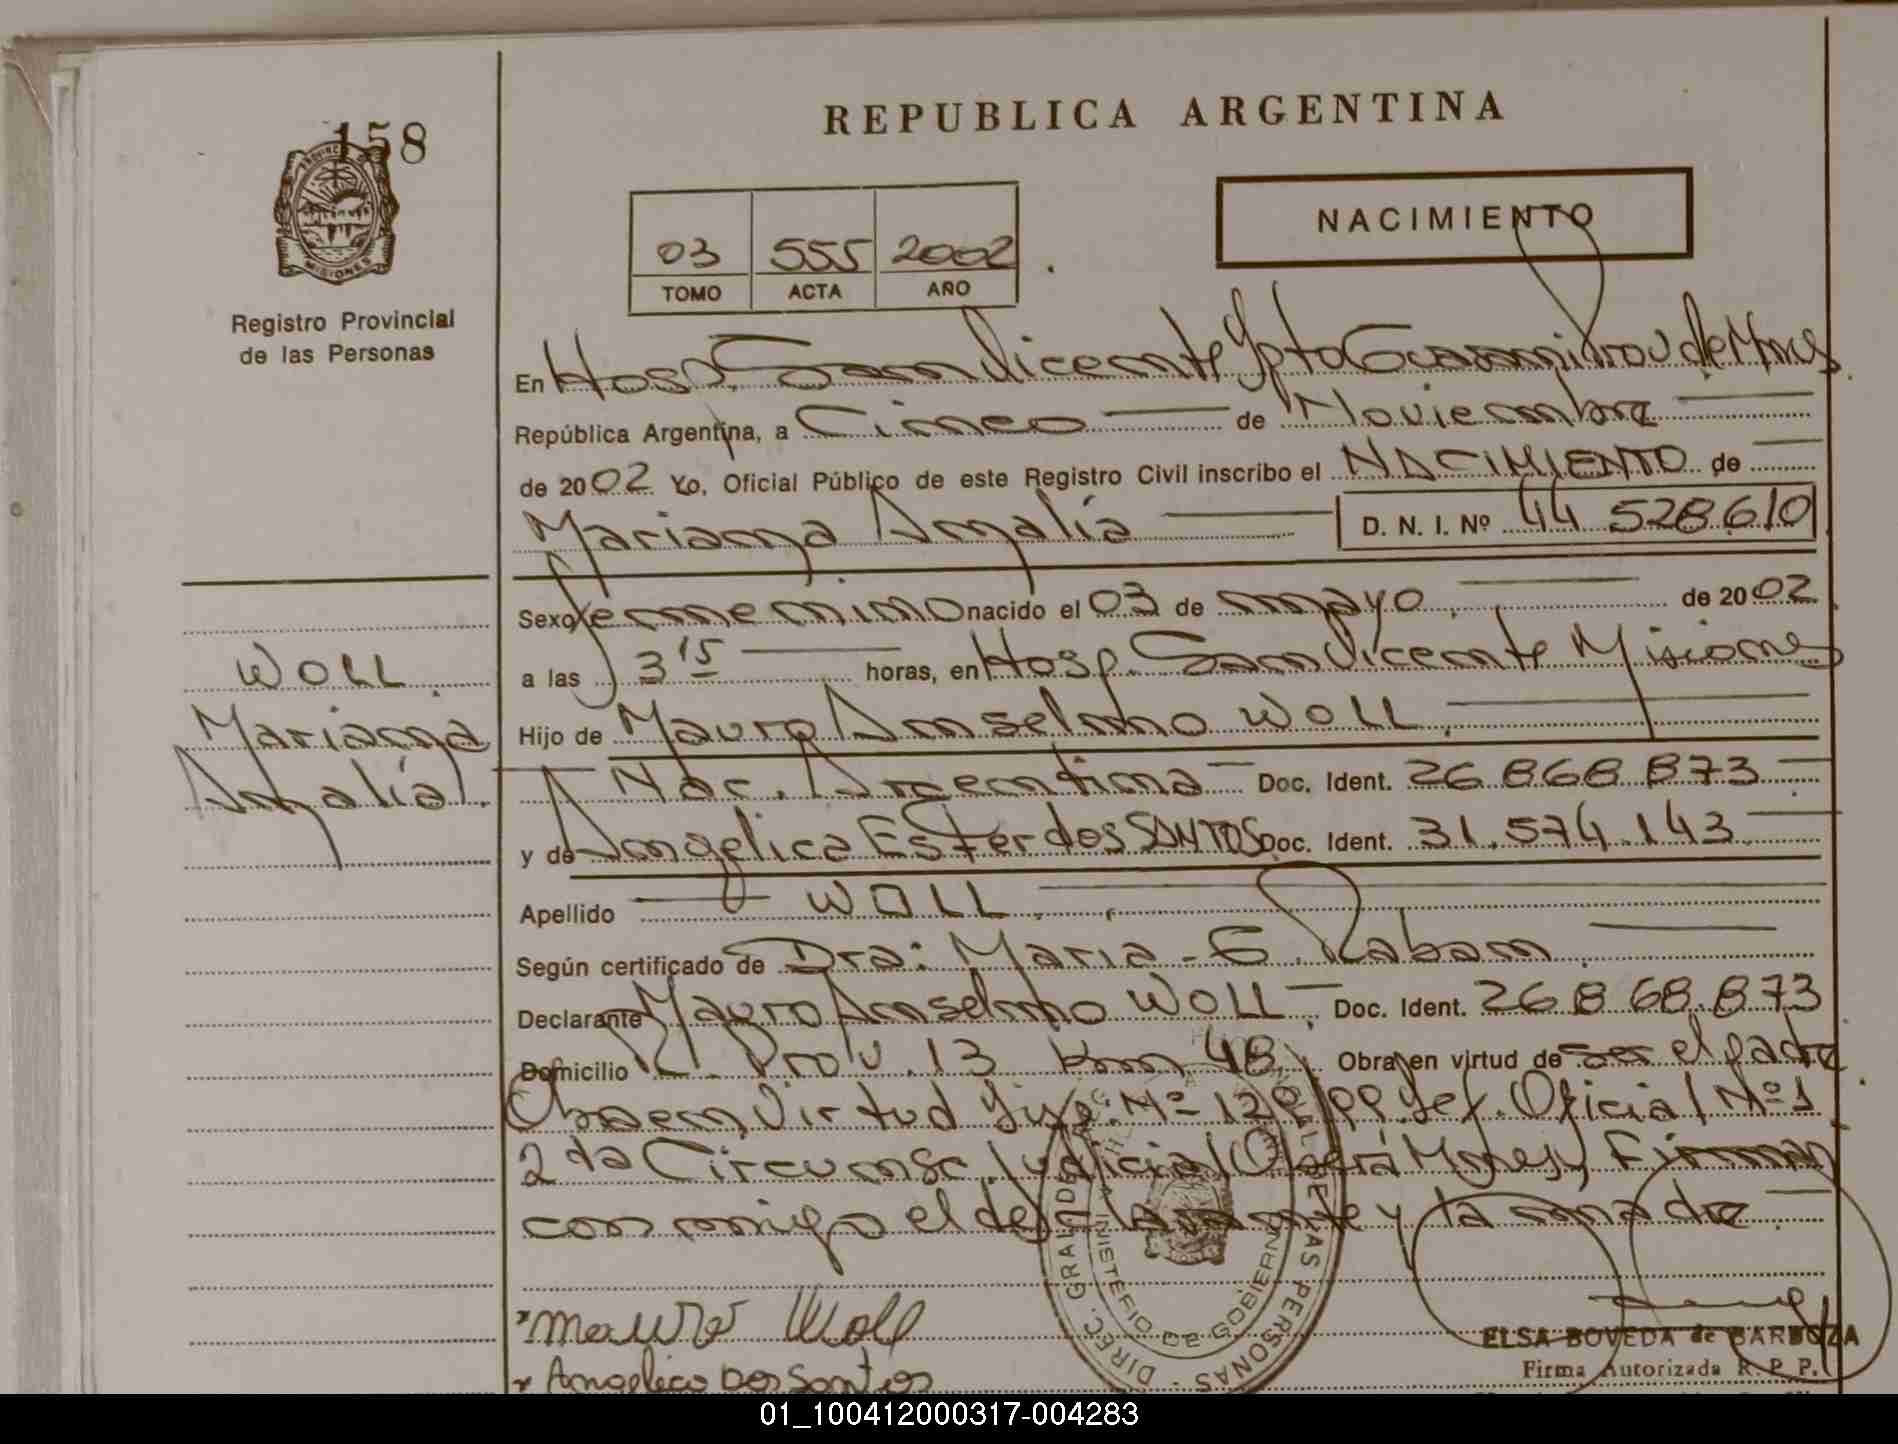 158
REPUBLICA ARGENTINA
NACIMIENTO
03 555 2002
TOMO ACTA AÑO
PROVINCIA DE
MISIONES
Registro Provincial
de las Personas
En Hosp. San Vicente Dpto Guarani Prov de Mnes
República Argentina, a Cinco de Noviembre
de 2002 Yo, Oficial Público de este Registro Civil inscribo el NACIMIENTO de
Mariana Amalia D. N. I. Nº 44 528.610
Sexo femenino nacido el 03 de mayo de 2002
a las 3 15 horas, en Hosp. San Vicente Misiones
Hijo de Mauro Anselmo WOLL
Nac. Argentina Doc. Ident. 26 868 873
y de Angelica Ester dos SANTOS Doc. Ident. 31.574.143
Apellido WOLL
Según certificado de Dra: Maria - E. Raban
Declarante Mauro Anselmo WOLL Doc. Ident. 26 868.873
Domicilio R. Prov. 13 Km 48 Obra en virtud de ser el padre
Obra en Virtud Oficial Nº 1
2da Circunsc. Judicial Oberá Mnes, Firman
conmigo el declarante y la madre
WOLL
Mariana
Amalia
Mauro Woll
Angelica dos Santos
DIREC. GRAL. DE PERSONAS
MINISTERIO DE GOBIERNO
ELSA BOVEDA de BARBOZA
Firma Autorizada R. P. P.
01_100412000317-004283